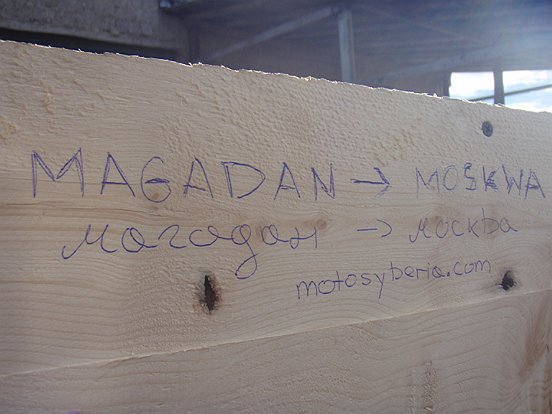 MAGADAN → MOSKWA
Магадан → Москва
motosyberia.com